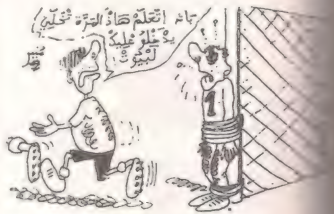 باش اتعلم هاذ المرة تخلي
يدخلو عليك
لبيوت
منير
1